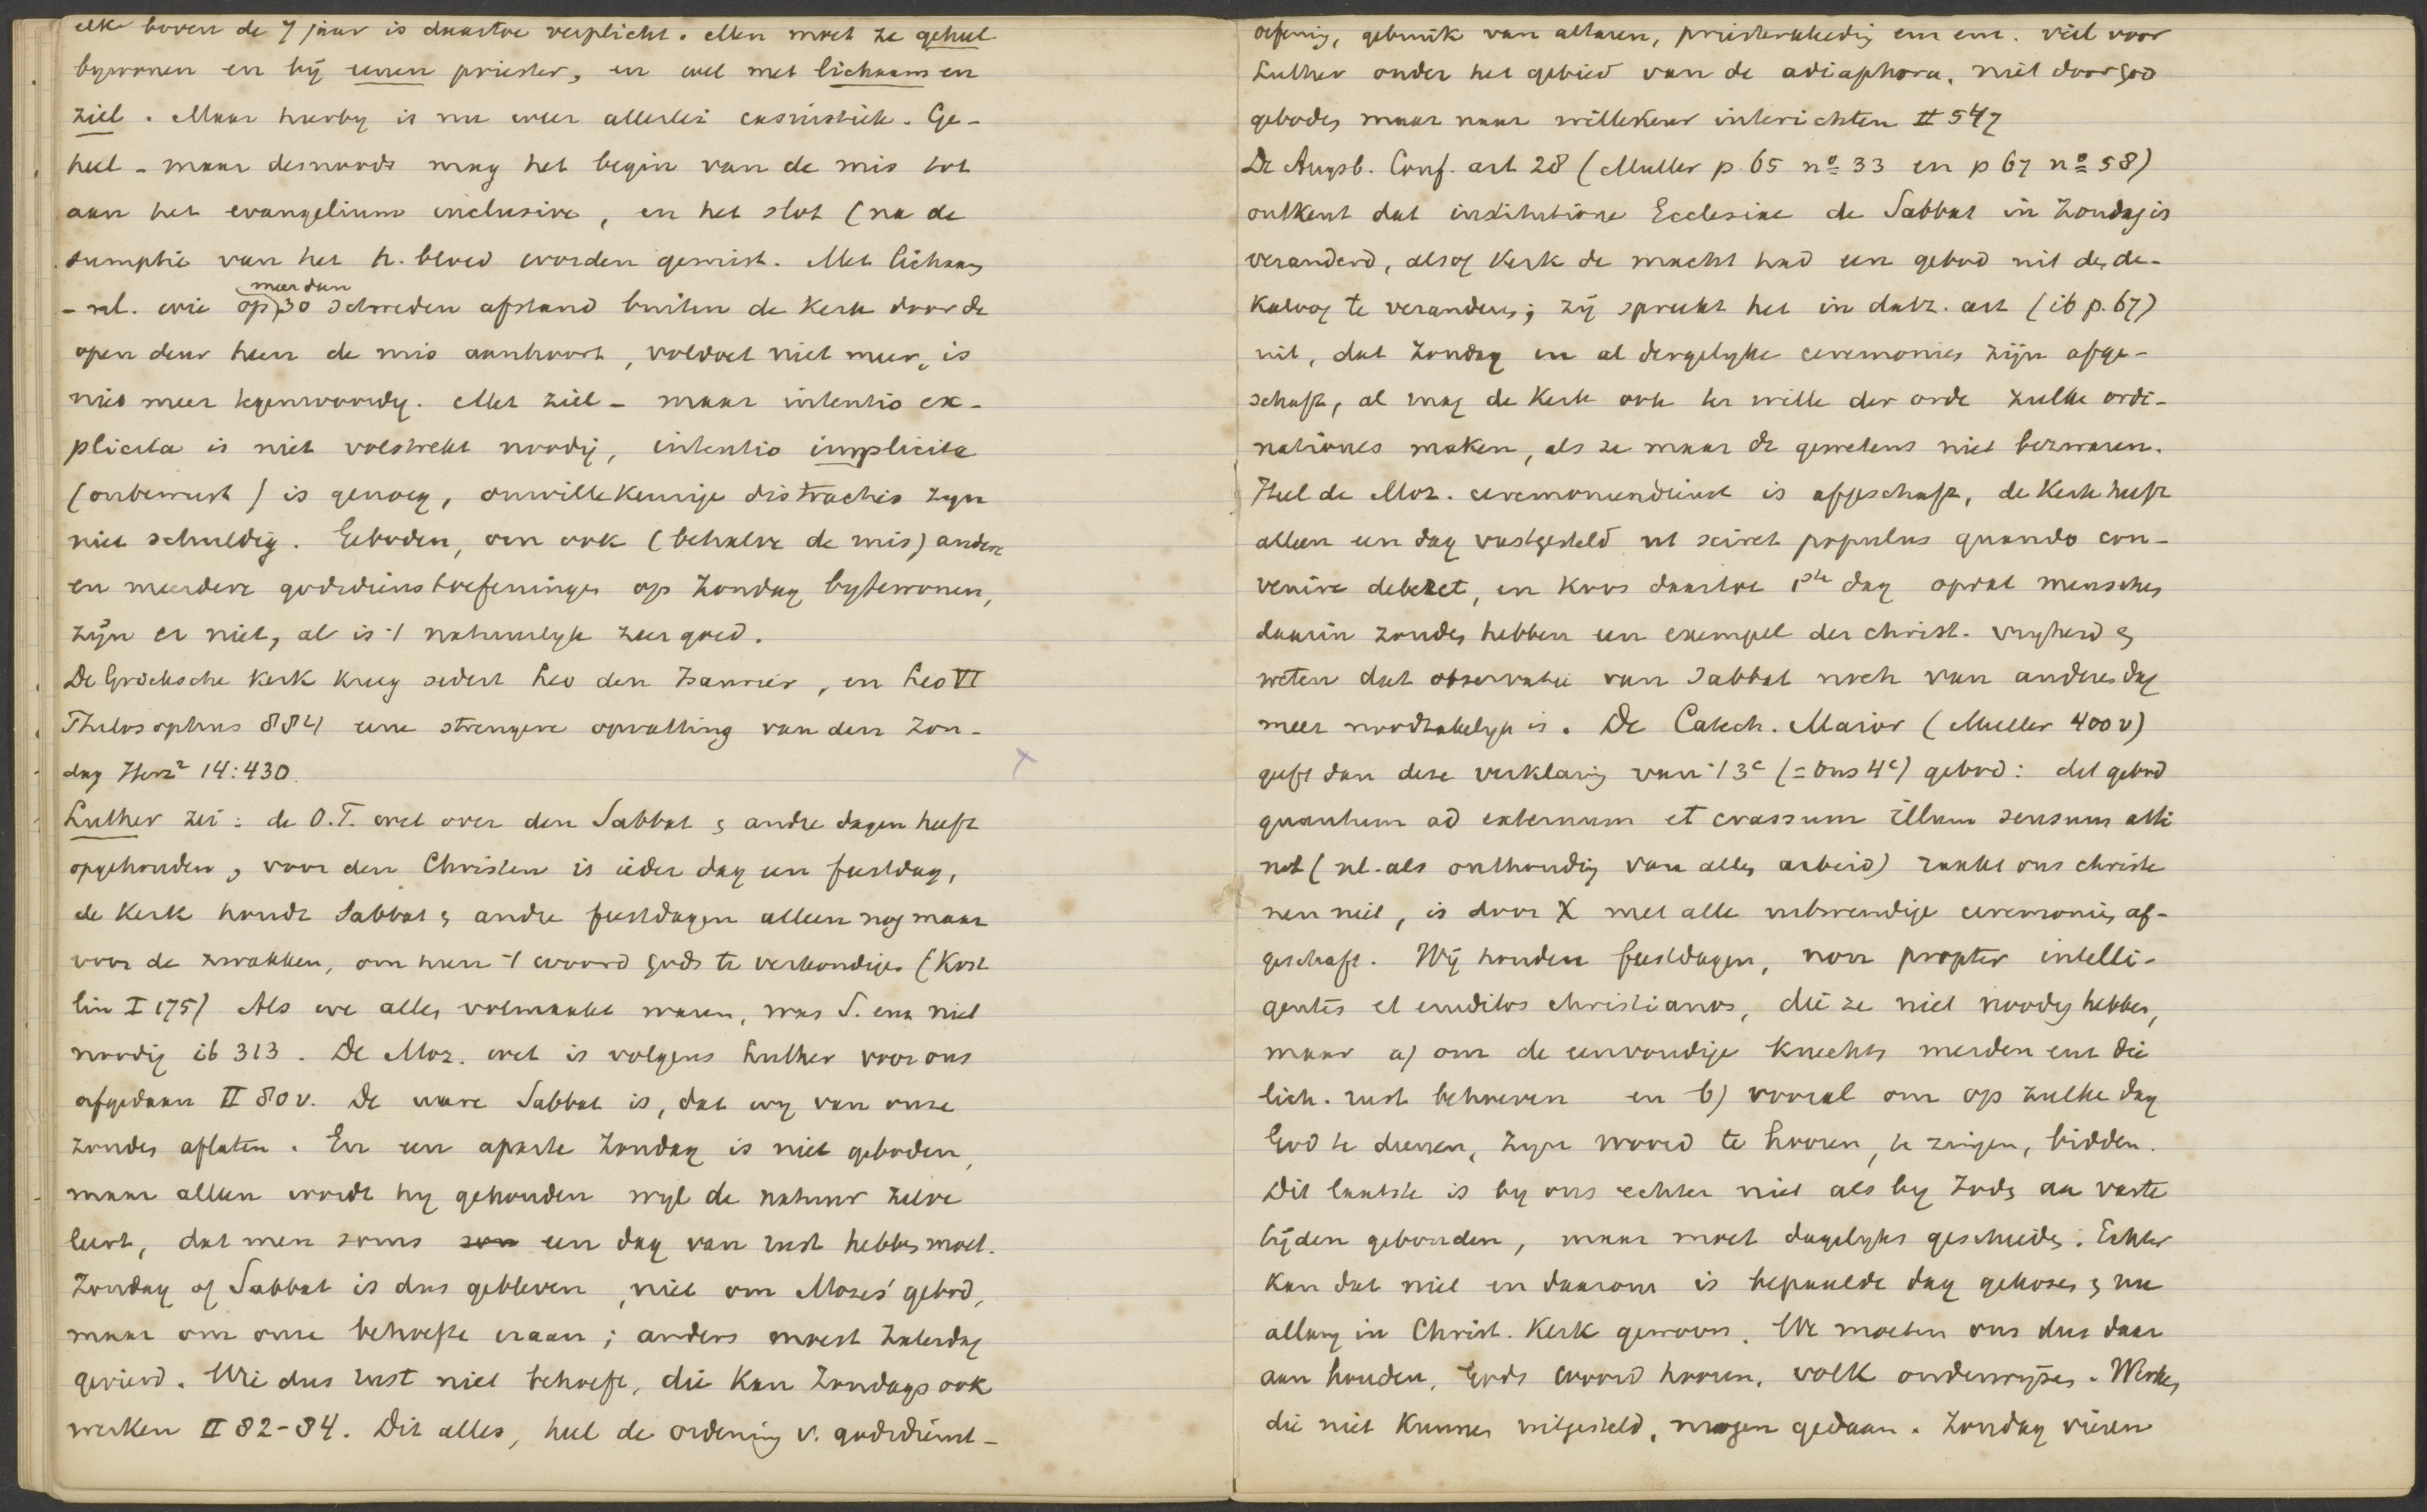 elk boven de 7 jaar is daartoe verplicht. Men moet ze geheel
bywonen en bij eenen priester, en wel met lichaam en
ziel. Maar hierby is nu weer allerlei casuistiek. Ge-
heel - maar desnoods mag het begin van de mis tot
aan het evangelium inclusive, en het slot (na de
sumptie van het h. bloed worden gemist. Met lichaam
- nl. wie op meer dan 30 schreden afstand buiten de kerk door de
open deur heen de mis aanhoort, voldoet niet meer, is
niet meer tegenwoordig. Met ziel - maar intentio ex-
plicita is niet volstrekt noodig, intentio implicita
(onbewust) is genoeg, onwillekeurige distracties zyn
niet schuldig. Geboden, om ook (behalve de mis) andere
en meerdere godsdienstoefeningen op Zondag bytewonen,
zijn er niet, al is 't natuurlyk zeer goed.
De Grieksche Kerk kreeg sedert Leo den Isaurier, en Leo VI
Philosophus 884 eene strengere opvatting van den Zon-
dag Herz² 14:430.
Luther zei: de O.T. wet over den Sabbat & andre dagen heeft
opgehouden, voor den Christen is ieder dag een feestdag,
de Kerk houdt Sabbat & andre feestdagen alleen nog maar
voor de zwakken, om hun 't woord Gods te verkondigen (Köst
lin I 175) Als we allen volmaakt waren, was S. enz niet
noodig ib 313. De Moz. wet is volgens Luther voor ons
afgedaan II 80v. De ware Sabbat is, dat wy van onze
zonden aflaten. En een aparte Zondag is niet geboden,
maar alleen wordt hy gehouden wyl de natuur zelve
leert, dat men soms zoo een dag van rust hebben moet.
Zondag of Sabbat is dus gebleven, niet om Mozes' gebod,
maar om onze behoefte eraan; anders moest Zaterdag
gevierd. Wie dus rust niet behoeft, die kan Zondags ook
werken II 82-84. Dit alles, heel de ordening v. godsdienst-
oefening, gebruik van altaren, priesterkleeding enz enz. viel voor
Luther onder het gebied van de adiaphora, niet door God
geboden maar naar willekeur interichten II 547
De Augsb. Conf. art 28 (Muller p. 65 nº 33 en p 67 nº 58)
ontkent dat institutione Ecclesiae de Sabbat in Zondag is
veranderd, alsof Kerk de macht had een gebod uit den de-
kaloog te veranderen; zij spreekt het in datz. art (ib p. 67)
uit, dat Zondag en al dergelyke ceremonies zijn afge-
schaft, al mag de Kerk ook ter wille der orde zulke ordi-
nationes maken, als ze maar de gewetens niet bezwaren.
Heel de Moz. ceremoniendienst is afgeschaft, de Kerk heeft
alleen een dag vastgesteld ut sciret populus quando con-
venire deberet, en koos daartoe 1ste dag opdat menschen
daarin zouden hebben een exempel der christ. vryheid &
weten dat observatie van Sabbat noch van anderen dag
meer noodzakelyk is. De Catech. Maior (Mueller 400v)
geeft dan deze verklaring van 't 3e (= ons 4e) gebod: dit gebod
quantum ad externum et crassum illum sensum atti
net (nl. als onthouding van allen arbeid) raakt ons christe
nen niet, is door X met alle uitwendige ceremonien af-
geschaft. Wij houden feestdagen, non propter intelli-
gentes et eruditos christianos, die ze niet noodig hebben,
maar a) om de eenvoudige knechts meiden enz die
lich. rust behoeven en b) vooral om op zulke dag
God te dienen, zyn woord te hooren, te zingen, bidden.
Dit laatste is by ons echter niet als by Joden aan vaste
tijden gebonden, maar moet dagelyks geschieden. Echter
kan dat niet en daarom is bepaalde dag gekozen & nu
allang in Christ. Kerk gewoon. We moeten ons dus daar
aan houden, Gods woord hooren, volk onderwijzen. Werken,
die niet kunnen uitgesteld, mogen gedaan. Zondag vieren